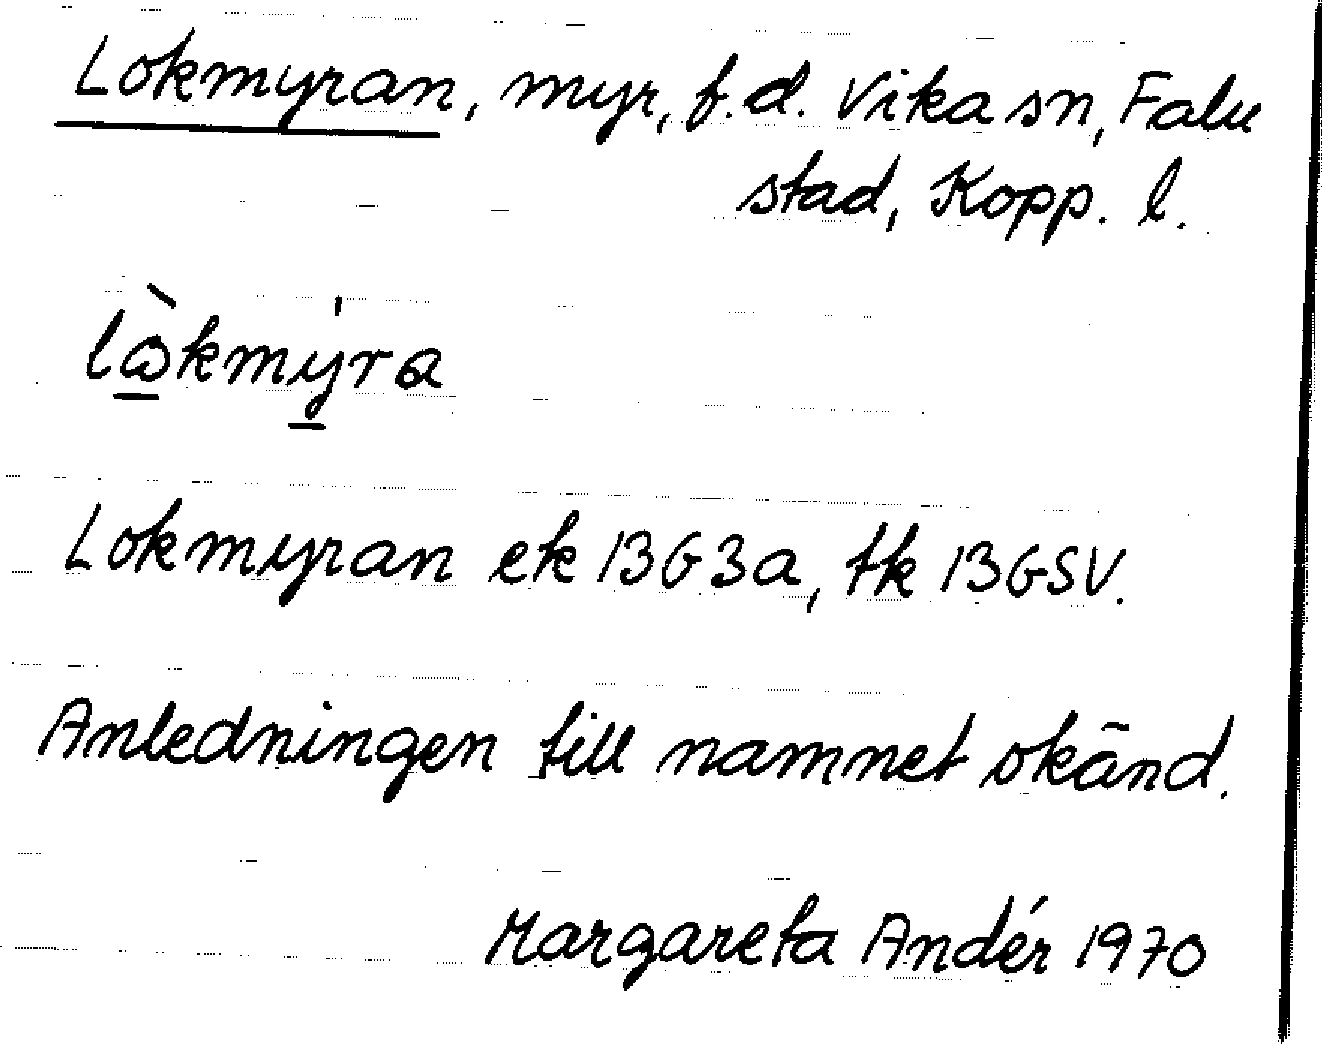 Lokmyran, myr, f.d. Vika sn, Falu
stad, Kopp. l.
lɷ̀kmy̍ra
Lokmyran ek 13G3a, tk 13GSV.
Anledningen till namnet okänd.
Margareta Andér 1970